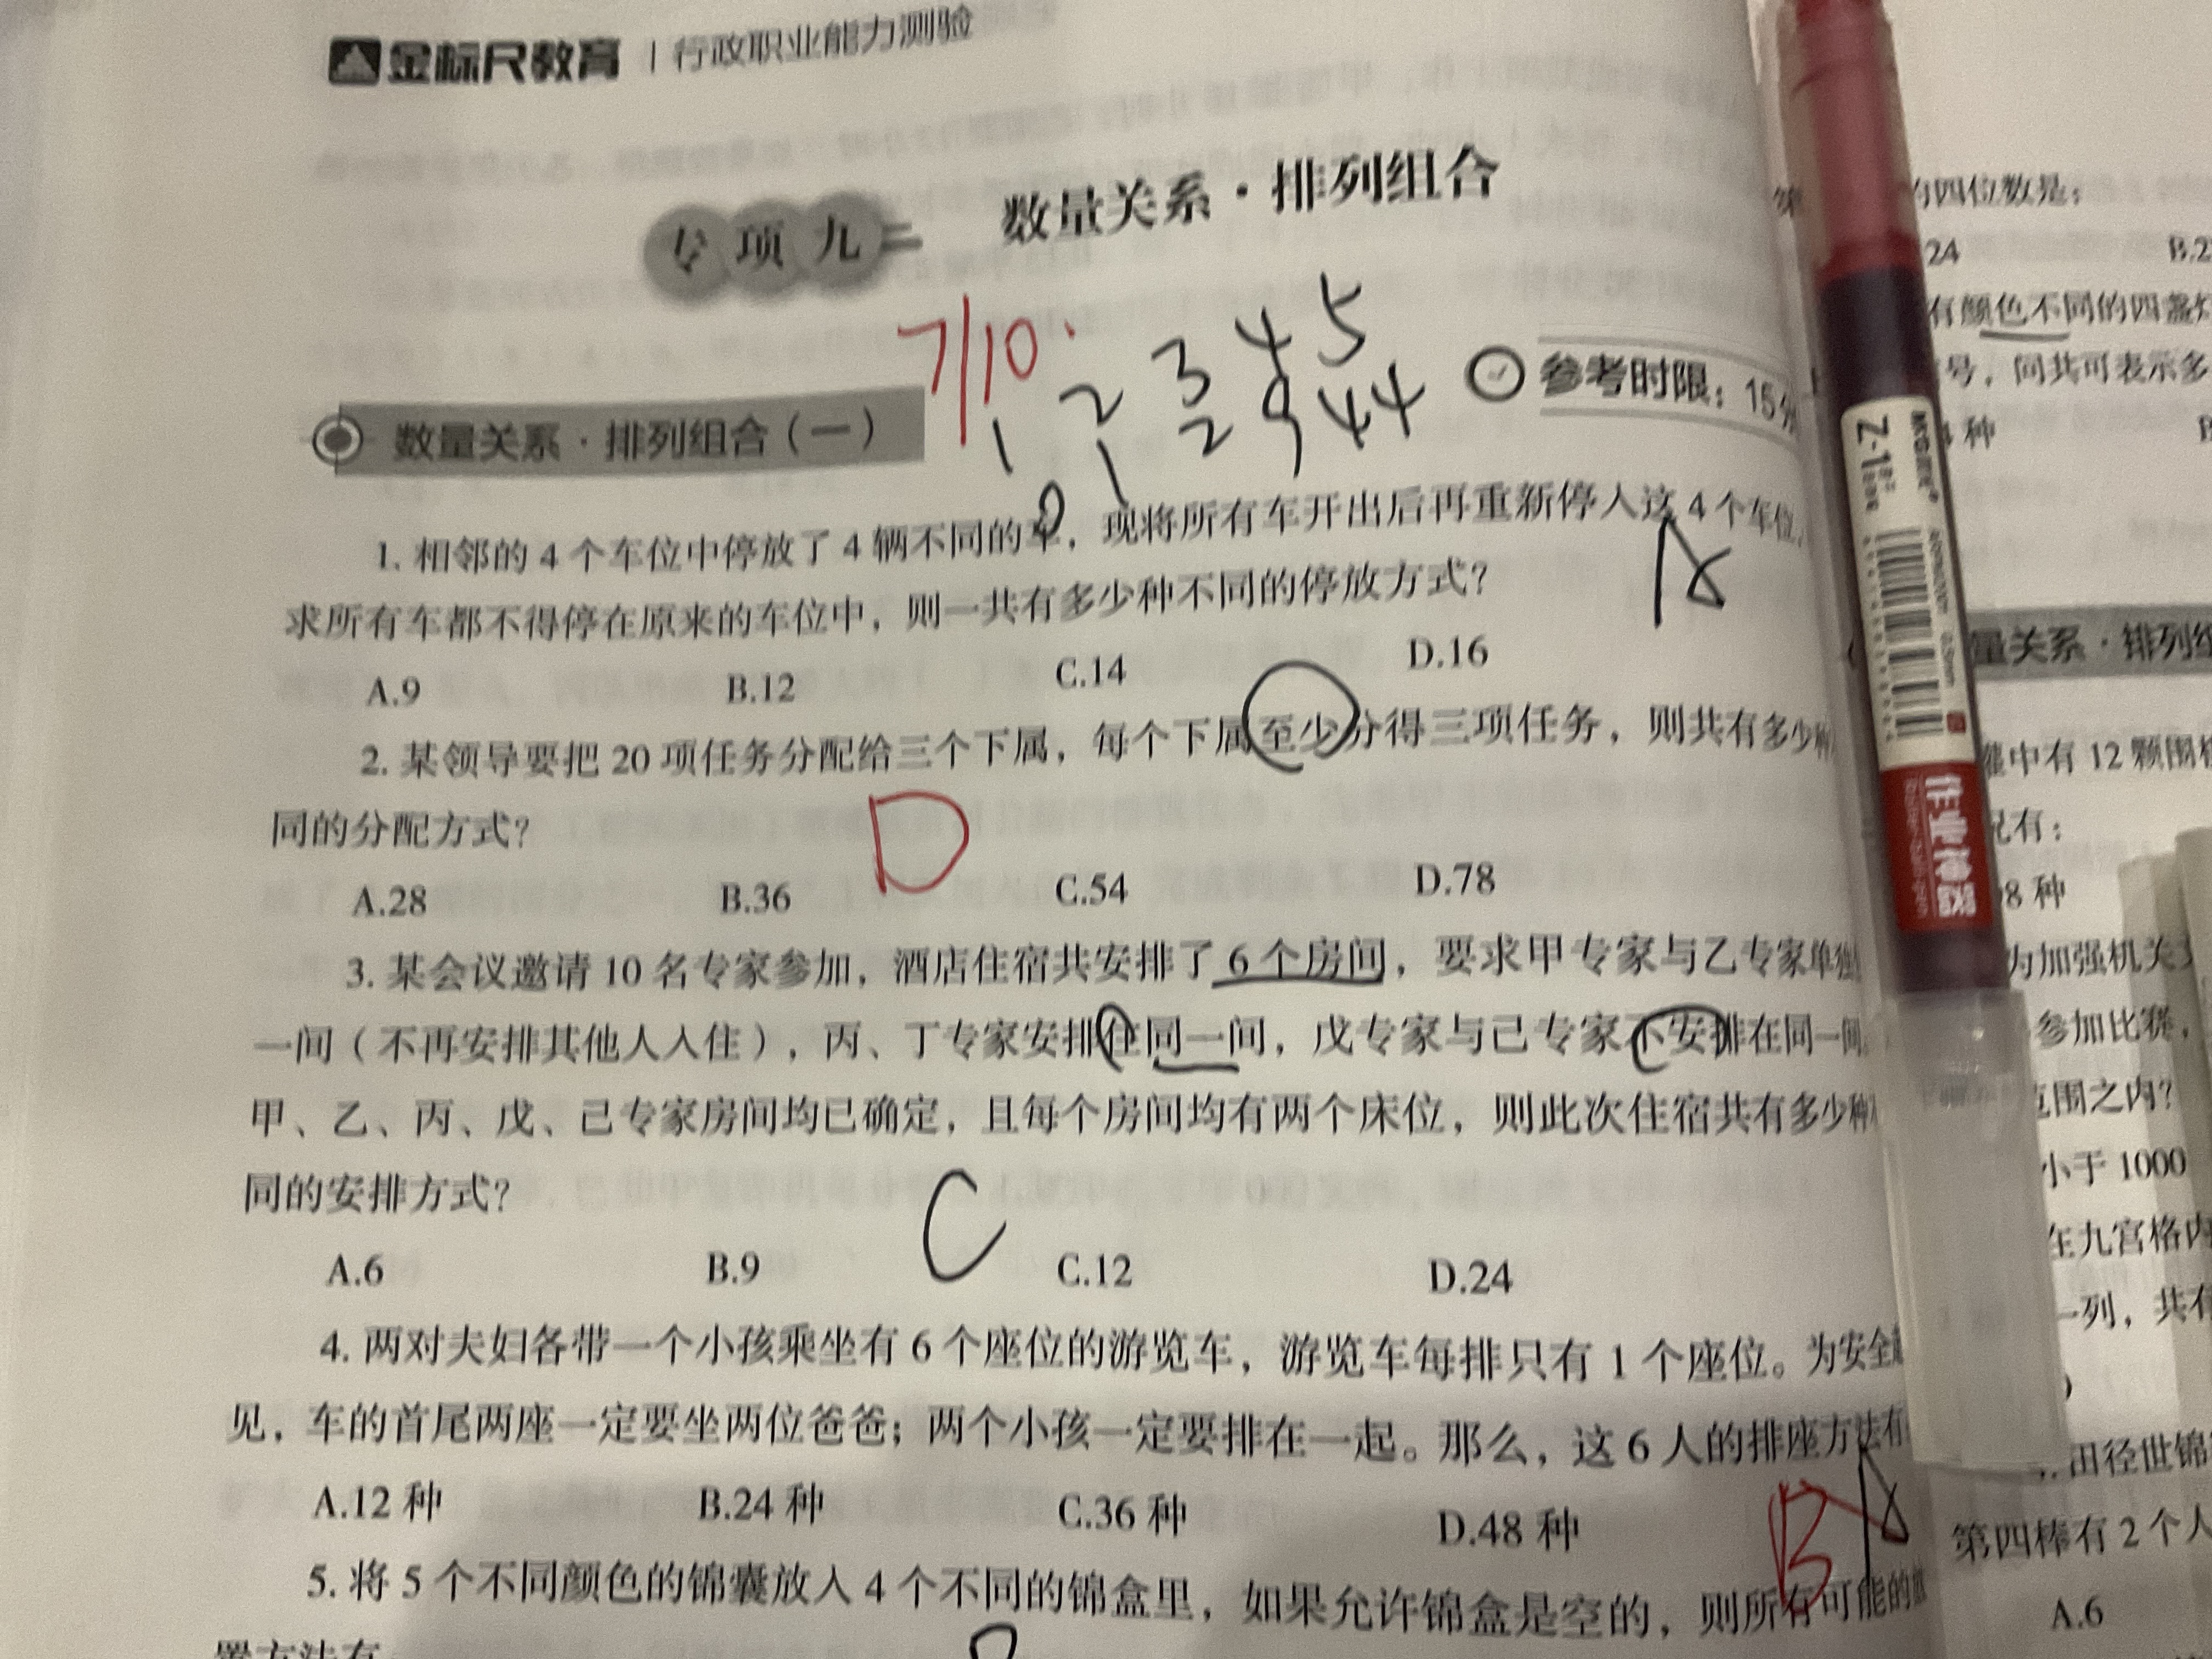 金标尺教育 | 行政职业能力测验
专项九 数量关系·排列组合
7/10
1 2 3 4 5
0 1 2 9 44
参考时限：15
数量关系·排列组合（一）
1. 相邻的 4 个车位中停放了 4 辆不同的车，现将所有车开出后再重新停入这 4 个车位，
求所有车都不得停在原来的车位中，则一共有多少种不同的停放方式？
A
A.9 B.12 C.14 D.16
2. 某领导要把 20 项任务分配给三个下属，每个下属至少分得三项任务，则共有多少种
同的分配方式？
D
A.28 B.36 C.54 D.78
3. 某会议邀请 10 名专家参加，酒店住宿共安排了 6 个房间，要求甲专家与乙专家单独
一间（不再安排其他人入住），丙、丁专家安排住同一间，戊专家与己专家不安排在同一间。
甲、乙、丙、戊、己专家房间均已确定，且每个房间均有两个床位，则此次住宿共有多少种
同的安排方式？
C
A.6 B.9 C.12 D.24
4. 两对夫妇各带一个小孩乘坐有 6 个座位的游览车，游览车每排只有 1 个座位。为安全
见，车的首尾两座一定要坐两位爸爸；两个小孩一定要排在一起。那么，这 6 人的排座方法有
A.12 种 B.24 种 C.36 种 D.48 种
B A
5. 将 5 个不同颜色的锦囊放入 4 个不同的锦盒里，如果允许锦盒是空的，则所有可能的放
置方法有
的四位数是：
24 B.2
有颜色不同的四盏灯
号，问共可表示多
种
M&G
Z-1
0.5mm
作业神器
量关系·排列组
中有 12 颗围棋
况有：
98 种
为加强机关
参加比赛，
范围之内？
小于 1000
在九宫格内
一列，共有
田径世锦
第四棒有 2 个人
A.6